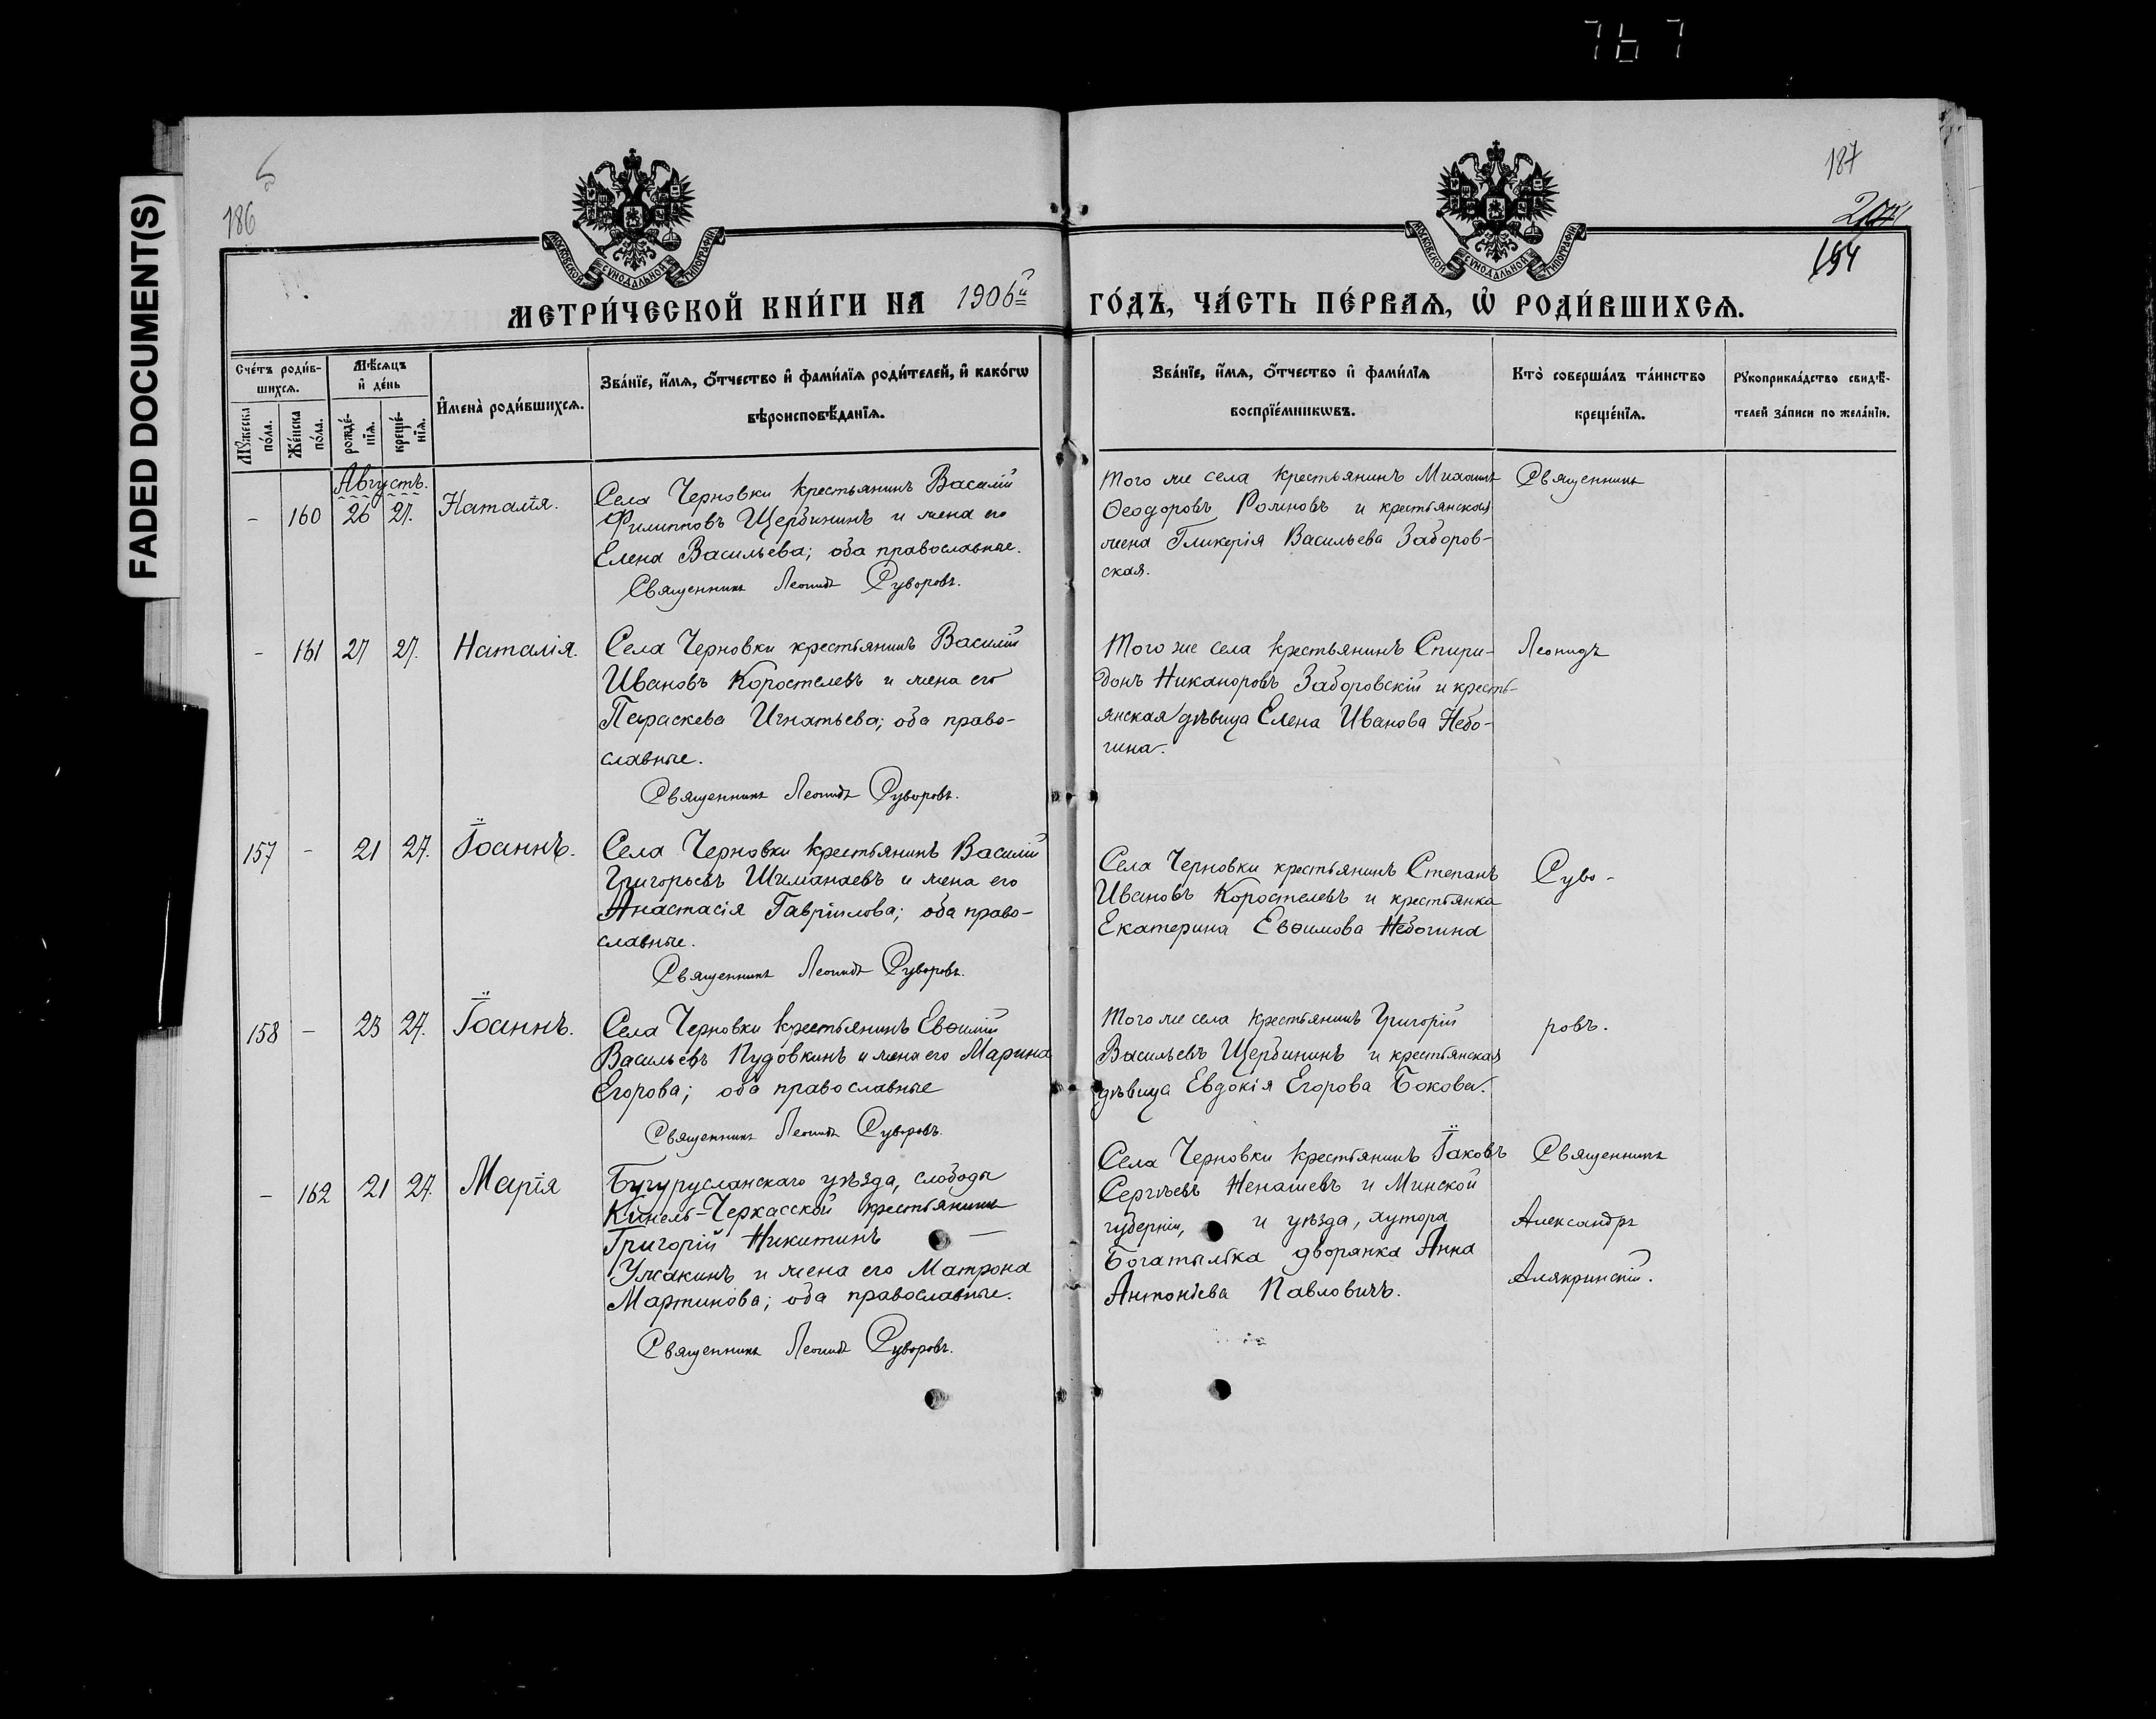 767
FADED DOCUMENT(S)
186
187
194
МОСКОВСКОЙ СУНОДАЛЬНОЙ ТИПОГРАФІИ
МОСКОВСКОЙ СУНОДАЛЬНОЙ ТИПОГРАФІИ
МЕТРИ́ЧЕСКОЙ КНИ́ГИ НА 1906й ГО́ДЪ, ЧА́СТЬ ПЕ́РВАѦ, Ѡ҆ РОДИ́ВШИХСѦ.
Сче́тъ роди́в-
шихсѧ.
Мꙋ́жеска по́ла.
Же́нска по́ла.
Мѣ́сѧцъ
и҆ де́нь
рожде́-
нїѧ.
креще́-
нїѧ.
И҆мена̀ роди́вшихсѧ.
Зва́нїе, и҆́мѧ, ѻ҆́тчество и҆ фами́лїѧ роди́телей, и҆ како́гѡ
вѣроисповѣ́данїѧ.
Зва́нїе, и҆́мѧ, ѻ҆́тчество и҆ фами́лїѧ
воспрїе́мникѡвъ.
Кто̀ соверша́лъ та́инство
креще́нїѧ.
Рꙋкоприкла́дство свидѣ́-
телей за́писи по жела́нїю.
Августъ.
- 160 26 27. Наталія.
Села Черновки крестьянинъ Василій
Филипповъ Щербининъ и жена его
Елена Васильева; оба православные.
Священникъ Леонидъ Суворовъ.
Того же села крестьянинъ Михаилъ
Ѳеодоровъ Роминовъ и крестьянская
жена Гликерія Васильева Заборов-
ская.
Священникъ
- 161 27 27. Наталія.
Села Черновки крестьянинъ Василій
Ивановъ Коростелевъ и жена его
Параскева Игнатьева; оба право-
славные.
Священникъ Леонидъ Суворовъ.
Того же села крестьянинъ Спири-
донъ Никаноровъ Заборовскій и кресть-
янская дѣвица Елена Иванова Небо-
гина.
Леонидъ
157 - 21 27. Іоаннъ.
Села Черновки крестьянинъ Василій
Григорьевъ Шиманаевъ и жена его
Анастасія Гавріилова; оба право-
славные.
Священникъ Леонидъ Суворовъ.
Села Черновки крестьянинъ Степанъ
Ивановъ Коростелевъ и крестьянка
Екатерина Евѳимова Небогина
Суво-
158 - 23 27. Іоаннъ.
Села Черновки крестьянинъ Евѳимій
Васильевъ Пудовкинъ и жена его Марина
Егорова; оба православные
Священникъ Леонидъ Суворовъ.
Того же села крестьянинъ Григорій
Васильевъ Щербининъ и крестьянская
дѣвица Евдокія Егорова Бокова.
ровъ.
- 162 21 27. Марія
Бугурусланскаго уѣзда, слободы
Кинель-Черкасской крестьянинъ
Григорій Никитинъ —
Ужакинъ и жена его Матрона
Мартинова; оба православные.
Священникъ Леонидъ Суворовъ.
Села Черновки крестьянинъ Іаковъ
Сергѣевъ Ненашевъ и Минской
губерніи, и уѣзда, хутора
Богатылка дворянка Анна
Антоніева Павловичъ.
Священникъ
Александръ
Алякринскій.